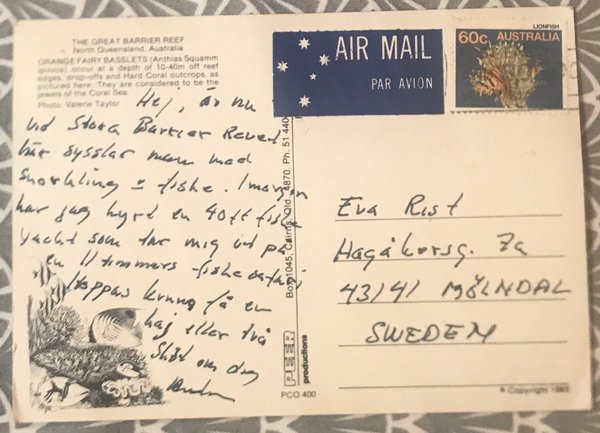 THE GREAT BARRIER REEF
North Queensland, Australia
ORANGE FAIRY BASSLETS (Anthias Squamm
ipinnis) occur at a depth of 10-40m off reef
edges, drop-offs and Hard Coral outcrops, as
pictured here. They are considered to be the
jewels of the Coral Sea.
Photo Valerie Taylor
Hej, är nu
vid Stora Barrier Revet
här sysslar man med
snorkling o fiske. Imorgon
har jag hyrt en 40ft fiske
yacht som tar mig ut på
en 11 timmars fiskesafari
Hoppas kunna få en
haj eller två
Sköt om dig
Box 1045, Cairns, Qld. 4870. Ph. 51 440
PEER
productions
PCO 400
AIR MAIL
PAR AVION
LIONFISH
60c AUSTRALIA
Eva Rist
Hagåkersg. 7a
43141 MÖLNDAL
SWEDEN
© Copyright